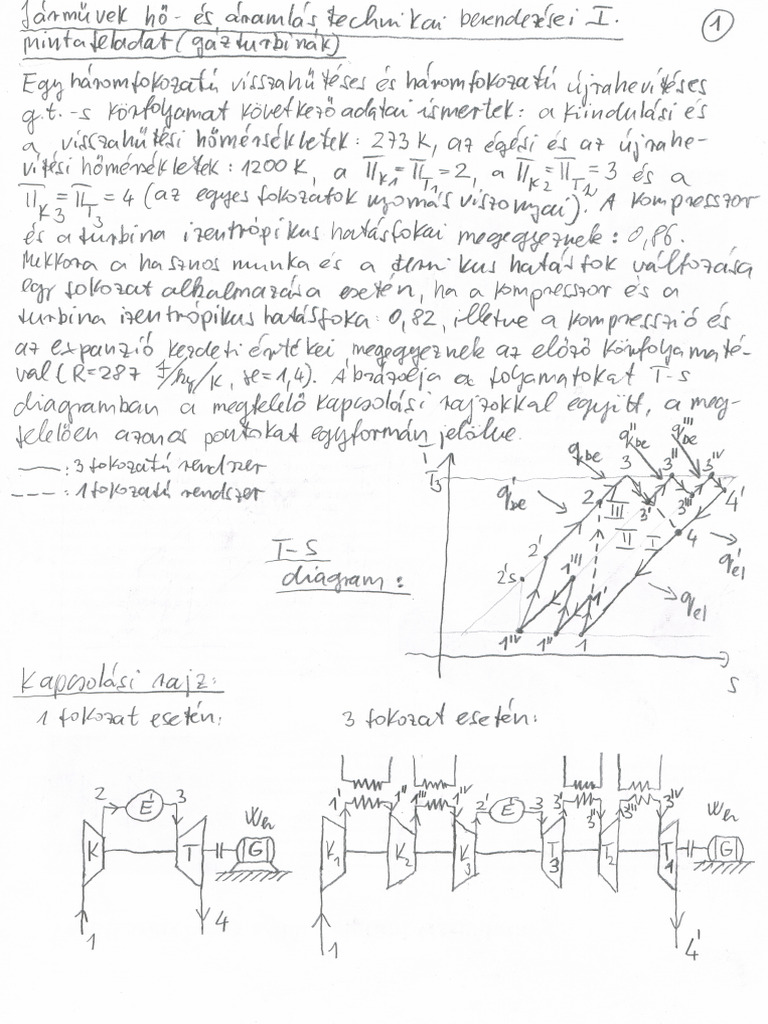 Járművek hő- és áramlástechnikai berendezései I. ①
mintafeladat (gázturbinák)
Egy háromfokozatú visszahűtéses és háromfokozatú újrahevítéses
g.t.-s körfolyamat következő adatai ismertek: a kiindulási és
a visszahűtési hőmérsékletek: 273 K, az égési és az újrahe-
vítési hőmérsékletek: 1200 K, a π_K1 = π_T1 = 2, a π_K2 = π_T2 = 3 és a
π_K3 = π_T3 = 4 (az egyes fokozatok nyomásviszonyai). A kompresszor
és a turbina izentrópikus hatásfokai megegyeznek: 0,86.
Mekkora a hasznos munka és a termikus hatásfok változása
egy fokozat alkalmazása esetén, ha a kompresszor és a
turbina izentrópikus hatásfoka: 0,82, illetve a kompresszió és
az expanzió kezdeti értékei megegyeznek az előző körfolyamaté-
val (R=287 J/kg/K, ϰ=1,4). Ábrázolja a folyamatokat T-s
diagramban a megfelelő kapcsolási rajzokkal együtt, a meg-
felelően azonos pontokat egyformán jelölve.
——: 3 fokozatú rendszer
---: 1 fokozatú rendszer
T-S
diagram:
T₃ q'be qbe q''be q'''be
2 3 3' 3'' 3''' 3'''' 4'
III II I 4
2' 2's 1''' 1'
q'el qel
1'''' 1'' 1
S
Kapcsolási rajz:
1 fokozat esetén: 3 fokozat esetén:
2 É 3
K T G Wen
1 4
1' 1'' 1''' 1'''' 2' É 3 3' 3'' 3''' 3''''
K₁ K₂ K₃ T₃ T₂ T₁ G Wen
1 4'